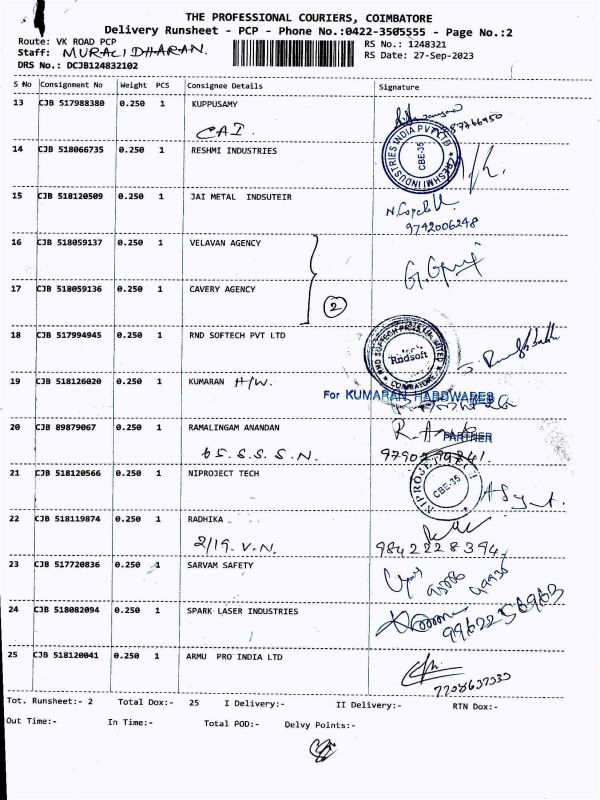 THE PROFESSIONAL COURIERS, COIMBATORE
Delivery Runsheet - PCP - Phone No.:0422-3505555 - Page No.:2
Route: VK ROAD PCP
RS No.: 1248321
Staff: MURALI DHARAN.
RS Date: 27-Sep-2023
DRS No.: DCJB124832102
S No Consignment No Weight PCS Consignee Details Signature
13 CJB 517988380 0.250 1 KUPPUSAMY
CAI.
14 CJB 518066735 0.250 1 RESHMI INDUSTRIES
RESHMI INDUSTRIES INDIA PVT LTD
CBE-35
15 CJB 518120509 0.250 1 JAI METAL INDSUTEIR
9742006248
16 CJB 518059137 0.250 1 VELAVAN AGENCY
17 CJB 518059136 0.250 1 CAVERY AGENCY
2
18 CJB 517994945 0.250 1 RND SOFTECH PVT LTD
RND SOFTECH PRIVATE LIMITED
Rndsoft
COIMBATORE
19 CJB 518126020 0.250 1 KUMARAN H/W.
For KUMARAN HARDWARES
20 CJB 89879067 0.250 1 RAMALINGAM ANANDAN
PARTNER
6 S.S.S.S.N.
21 CJB 518120566 0.250 1 NIPROJECT TECH
NIPROJECT
CBE-35
22 CJB 518119874 0.250 1 RADHIKA
2/19. V.N.
9842228394
23 CJB 517720836 0.250 1 SARVAM SAFETY
24 CJB 518082094 0.250 1 SPARK LASER INDUSTRIES
9962256963
25 CJB 518120041 0.250 1 ARMU PRO INDIA LTD
Tot. Runsheet:- 2 Total Dox:- 25 I Delivery:- II Delivery:- RTN Dox:-
Out Time:- In Time:- Total POD:- Delvy Points:-